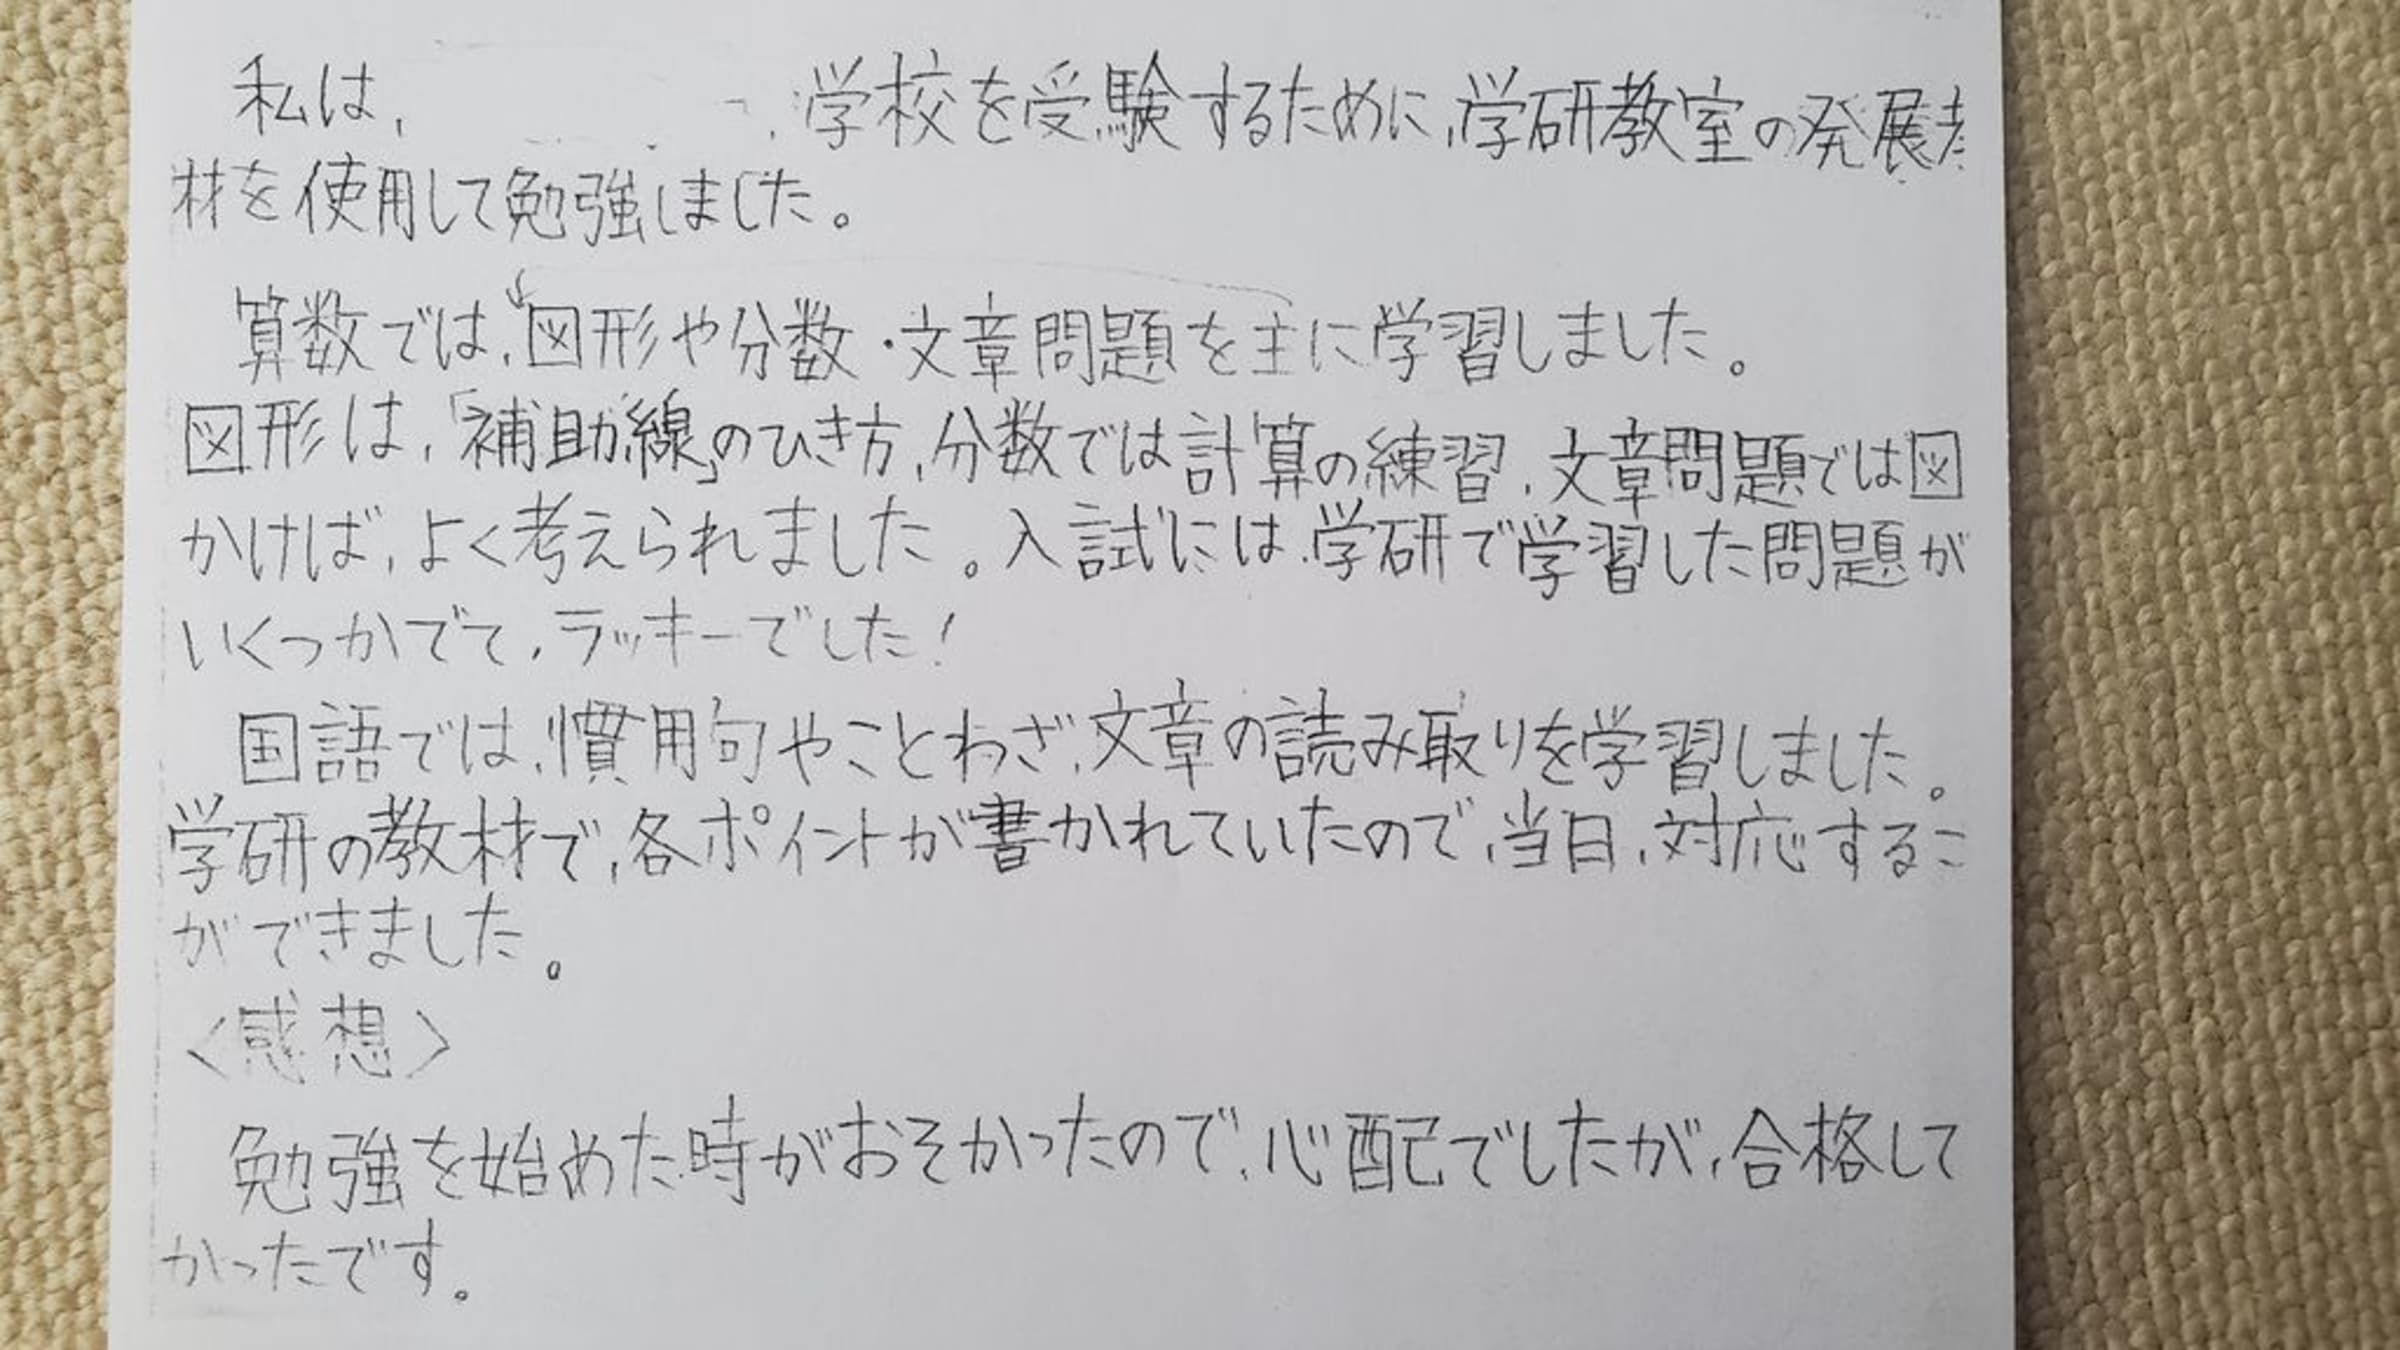 私は、 学校を受験するために、学研教室の発展
材を使用して勉強しました。
算数では、図形や分数・文章問題を主に学習しました。
図形は、「補助線」のひき方、分数では計算の練習、文章問題では図
かけば、よく考えられました。入試には、学研で学習した問題が
いくつかでて、ラッキーでした!
国語では、慣用句やことわざ、文章の読み取りを学習しました。
学研の教材で、各ポイントが書かれていたので、当日、対応するこ
ができました。
〈感想〉
勉強を始めた時がおそかったので、心配でしたが、合格して
かったです。